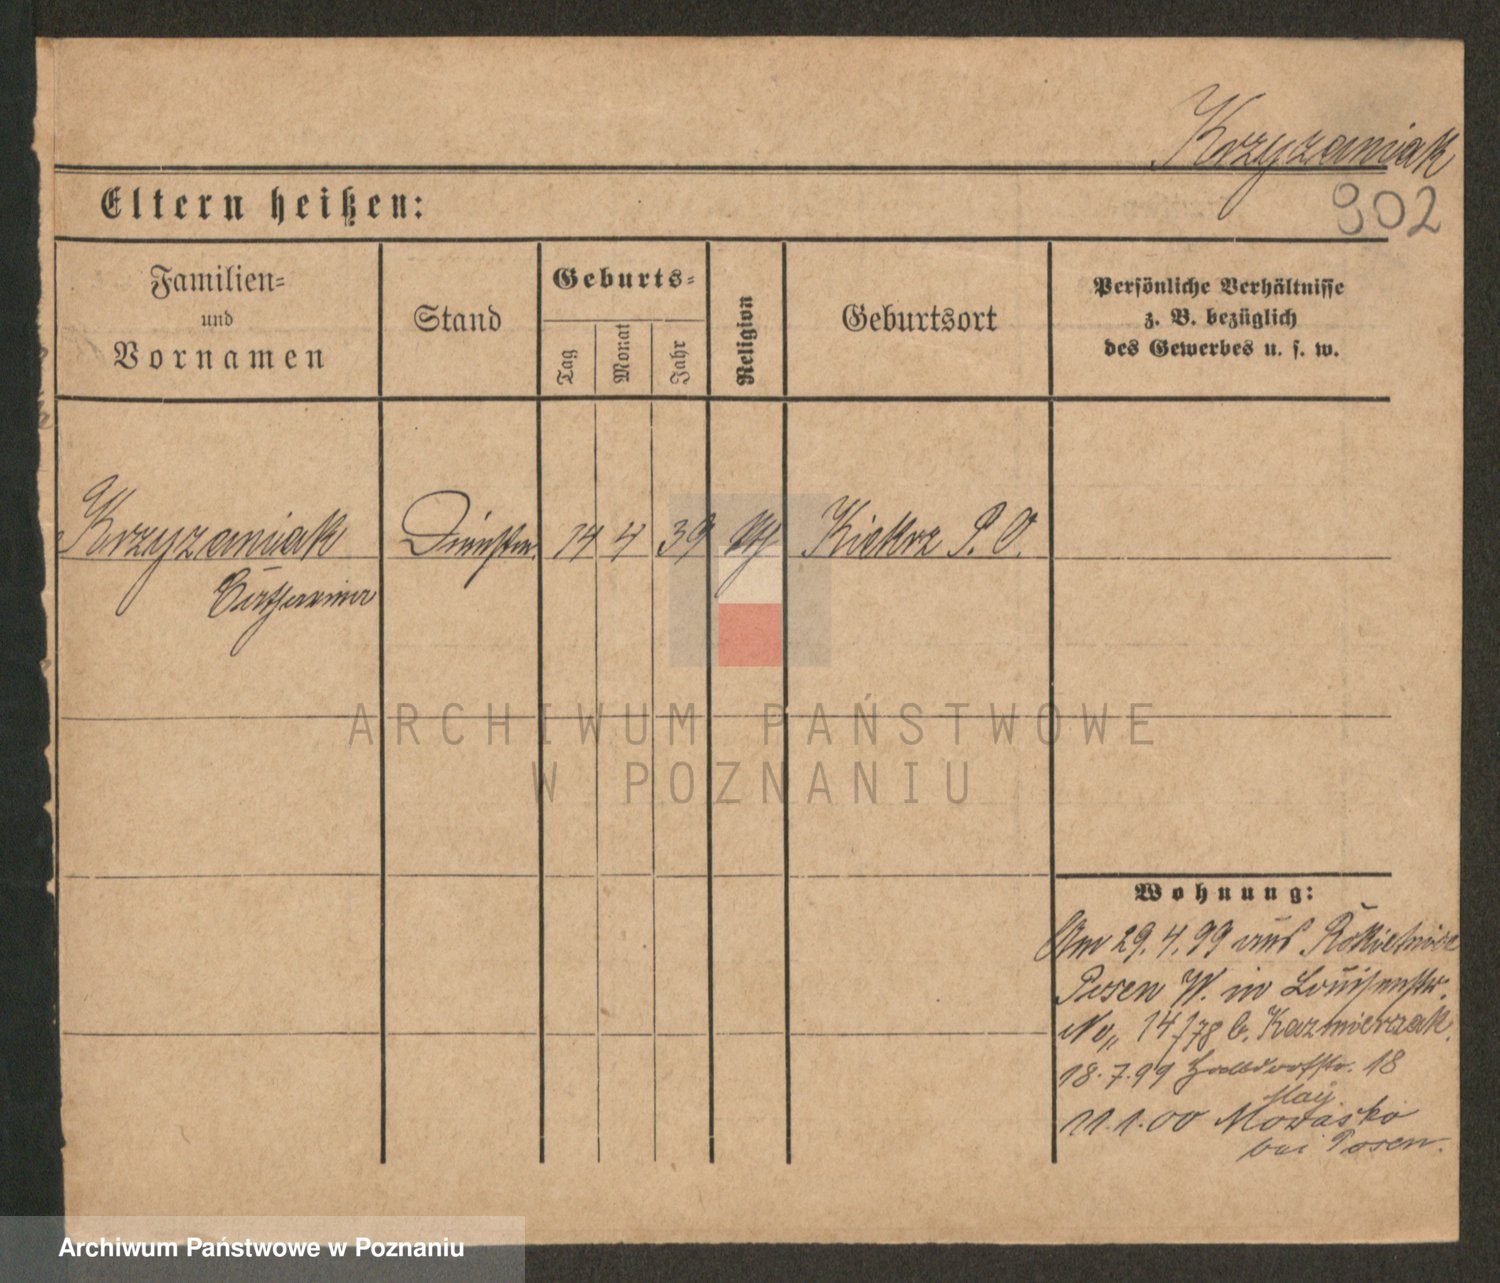 Krzyzaniak
902
Eltern heißen:
Familien-
und
Vornamen
Stand
Geburts-
Tag
Monat
Jahr
Religion
Geburtsort
Persönliche Verhältnisse
z. B. bezüglich
des Gewerbes u. s. w.
Krzyzaniak
Catharina
14 4 39
Kiekrz P. O.
ARCHIWUM PAŃSTWOWE
W POZNANIU
Wohnung:
Am 29.4.99 aus Rokietnice
Posen W. in Louisenstr.
No 14/78 b. Kazmierzak.
18.7.99 Halbdorfstr. 18
11.1.00
bei Posen.
Archiwum Państwowe w Poznaniu